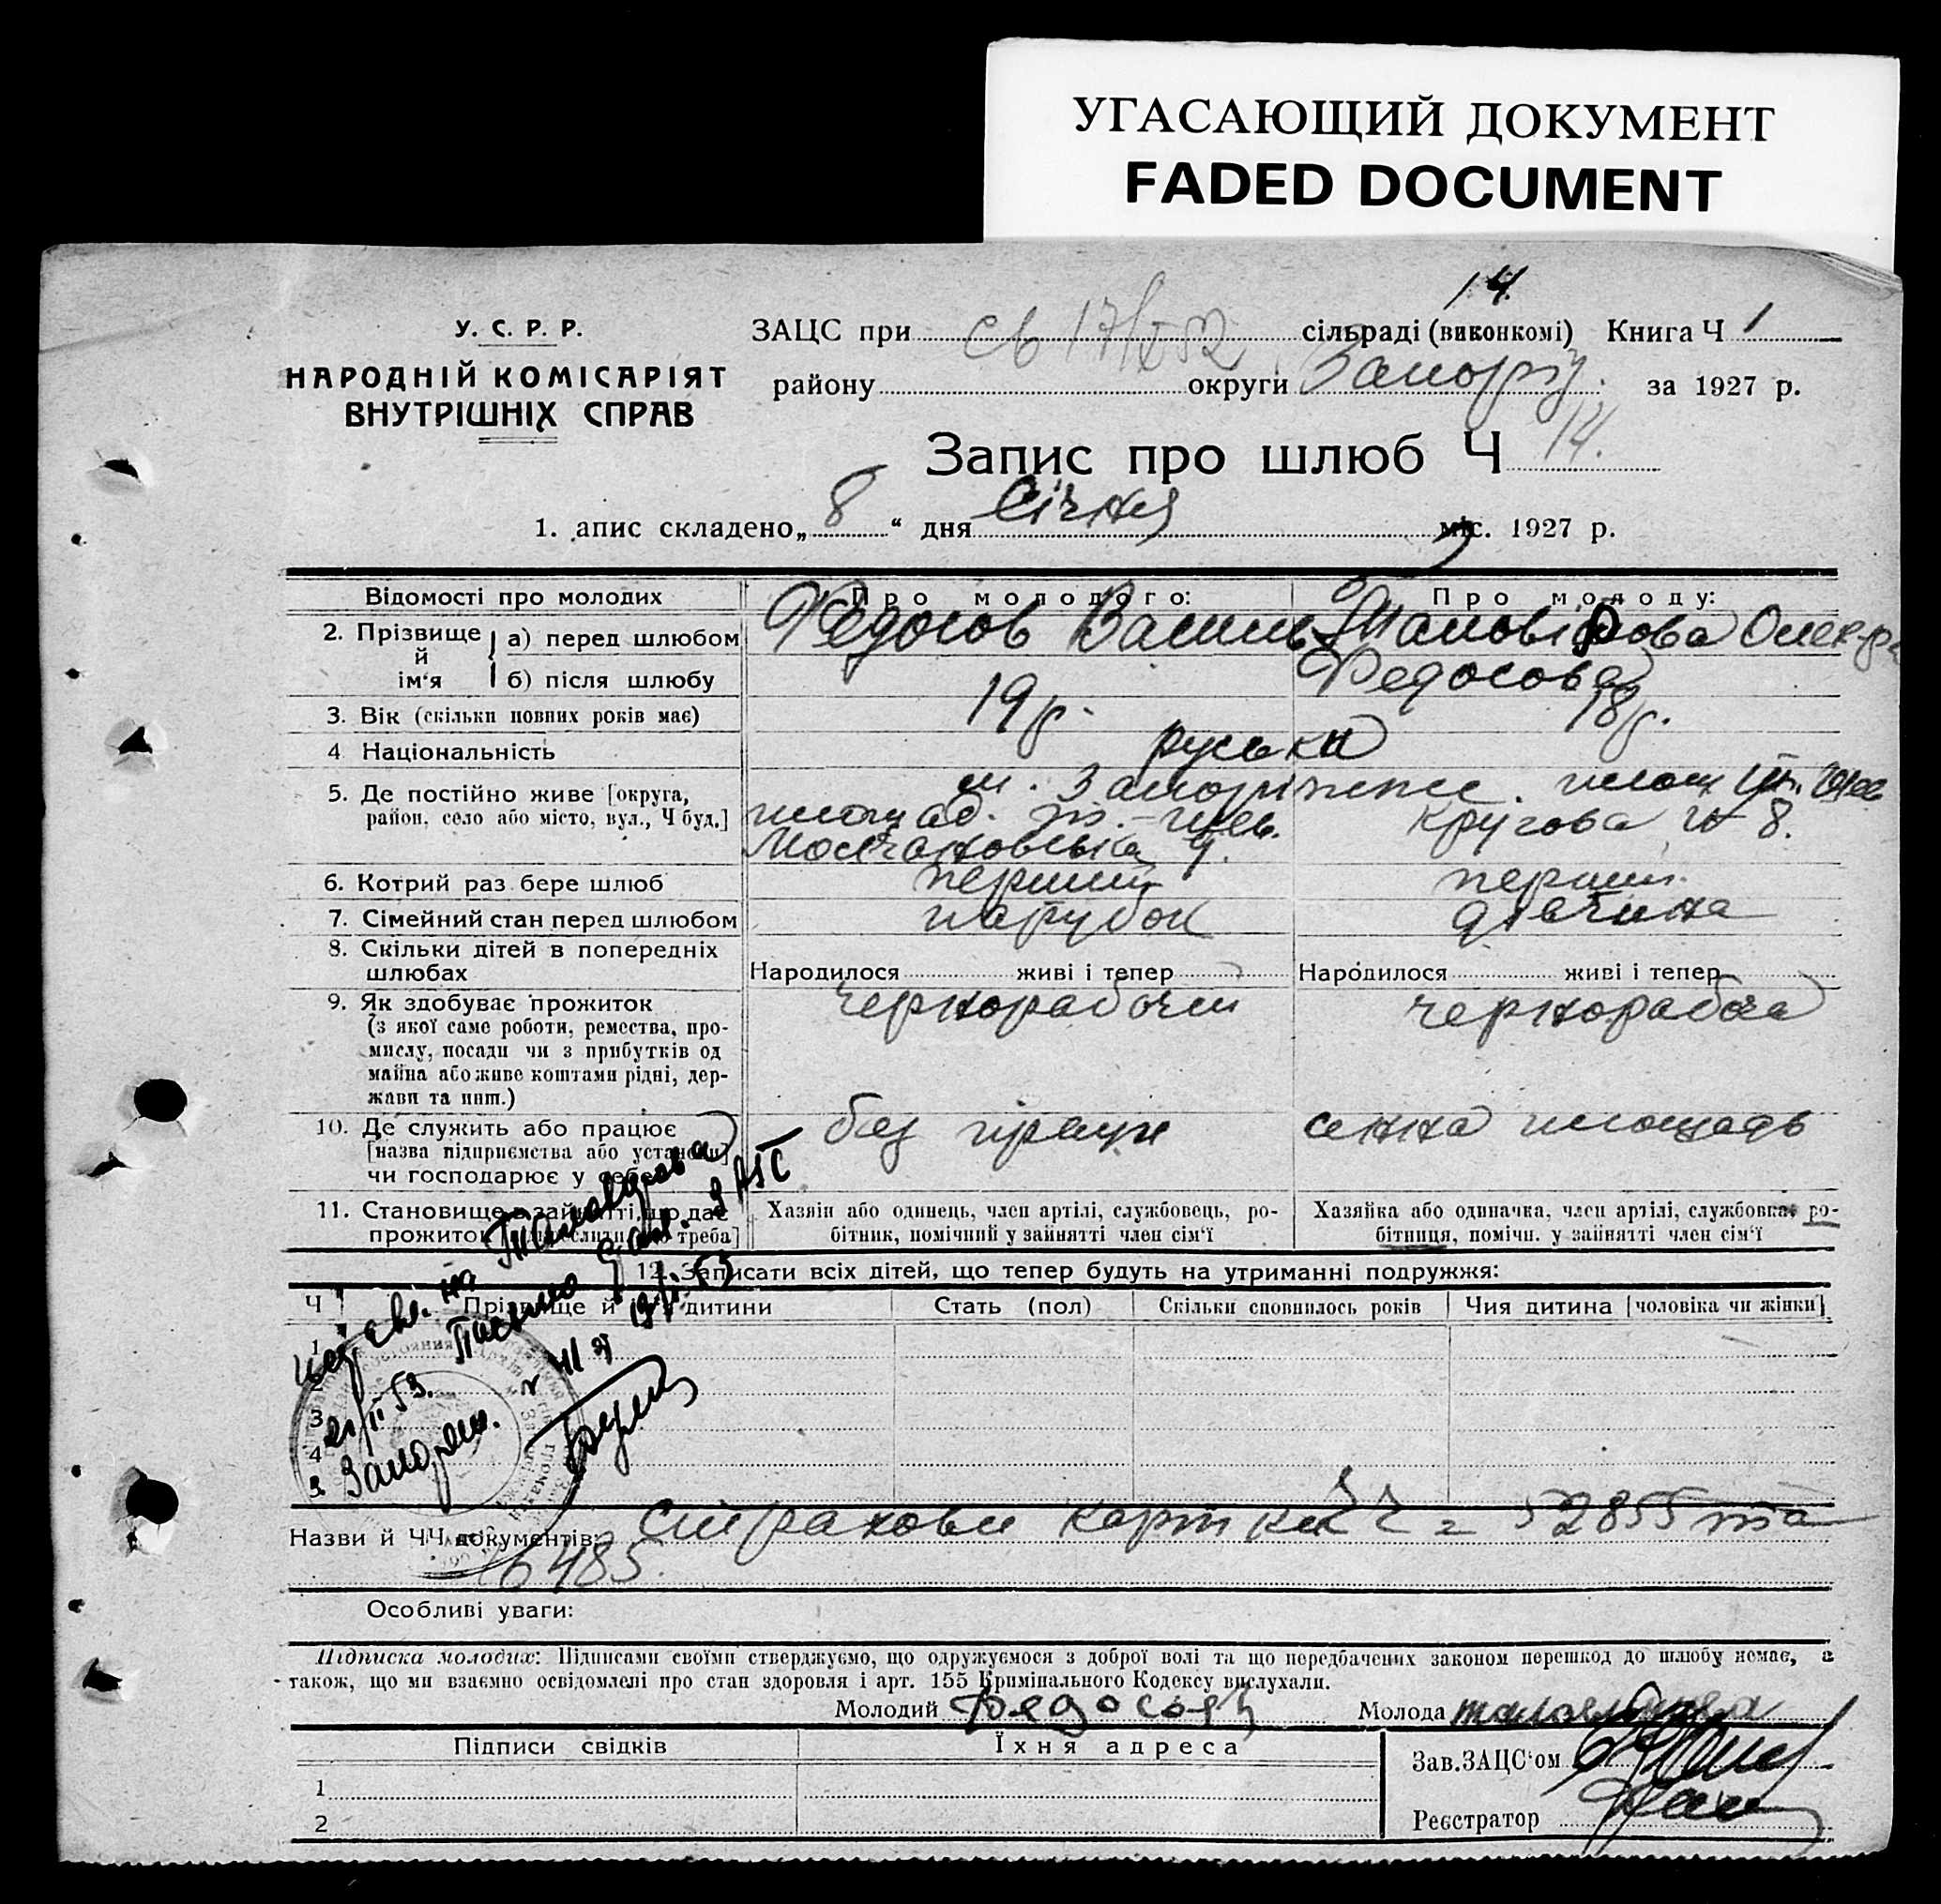 УГАСАЮЩИЙ ДОКУМЕНТ
FADED DOCUMENT
14.
У. С. Р. Р.
НАРОДНІЙ КОМІСАРІЯТ
ВНУТРІШНІХ СПРАВ
ЗАЦС при св 17/ сільраді (виконкомі) Книга Ч 1
району округи Запоріз. за 1927 р.
Запис про шлюб Ч 14.
1. апис складено „ 8 “ дня Січня міс. 1927 р.
Відомості про молодих Про молодого: Про молоду:
2. Прізвище й ім'я а) перед шлюбом Федосов Василь Олек-ра
б) після шлюбу Федосова
3. Вік (скільки повних років має) 19 р. 18 р.
4 Національність руська
5. Де постійно живе [округа, район, село або місто, вул., Ч буд.] м. Запоріжжє. площ
площад.
Кругова № 8.
6. Котрий раз бере шлюб перший перший.
7. Сімейний стан перед шлюбом парубок дівчина
8. Скільки дітей в попередніх шлюбах Народилося живі і тепер Народилося живі і тепер
9. Як здобуває прожиток чернорабочий чернорабоча
(з якої саме роботи, ремества, про-
мислу, посади чи з прибутків од
майна або живе коштами рідні, дер-
жави та инш.)
10. Де служить або працює без праци сенна площадь
[назва підприємства або установи]
чи господарює у себе
11. Становище в зайнятті, що дає Хазяін або одинець, член артілі, службовець, ро- Хазяйка або одиначка, член артілі, службовка, ро-
прожиток треба] бітник, помічний у зайнятті член сім'ї бітниця, помічн. у зайнятті член сім'ї
12. Записати всіх дітей, що тепер будуть на утриманні подружжя:
Ч Прізвище й дитини Стать (пол) Скільки сповнилось років Чия дитина [чоловіка чи жінки]
1
2
3
4
21/II 53.
ЗАГС
Назви й ЧЧ документів: Страхови картки ЧЧ 52855 та
16485.
Особливі уваги:
Підписка молодих: Підписами своїми стверджуємо, що одружуємося з доброї волі та що передбачених законом перешкод до шлюбу немає, а
також, що ми взаємно освідомлені про стан здоровля і арт. 155 Кримінального Кодексу вислухали.
Молодий Федосов Молода
Підписи свідків Їхня адреса Зав. ЗАЦС'ом
1
2 Реєстратор